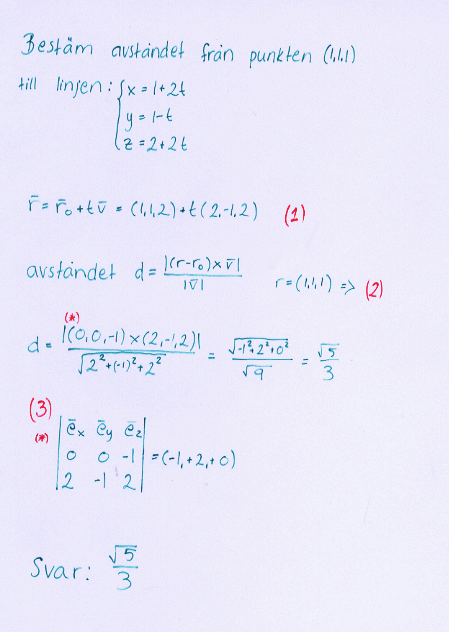 Bestäm avståndet från punkten (1,1,1)
till linjen: { x = 1+2t
y = 1-t
z = 2+2t
r̄ = r̄₀ + t v̄ = (1,1,2) + t(2,-1,2) (1)
avståndet d = |(r-r₀) × v̄| / |v̄| r = (1,1,1) => (2)
(*)
d = |(0,0,-1) × (2,-1,2)| / √(2²+(-1)²+2²) = √(-1²+2²+0²) / √9 = √5 / 3
(3)
(*) | ēx ēy ēz |
| 0 0 -1 | = (-1,+2,+0)
| 2 -1 2 |
Svar: √5 / 3